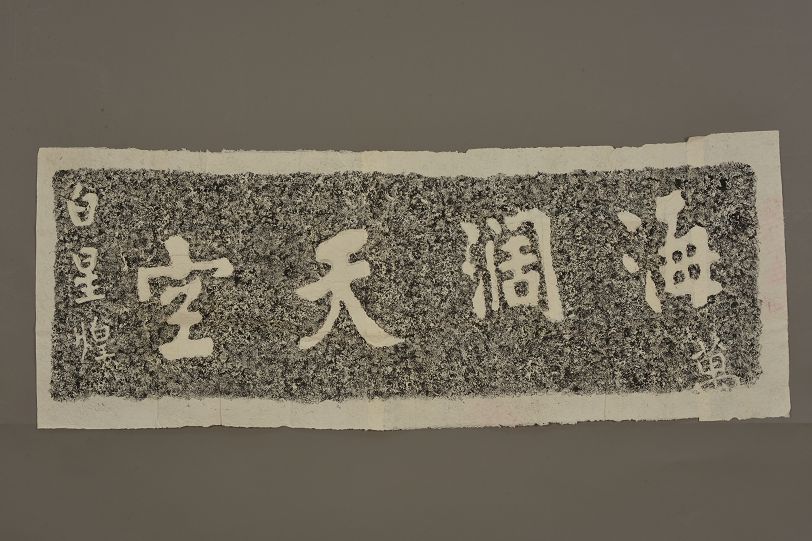 海濶天空
白星煌